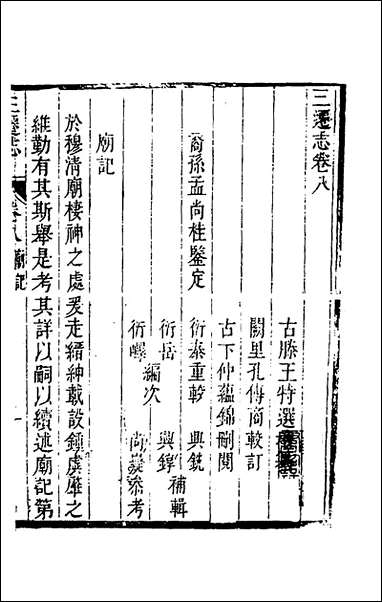 三遷志卷八
古滕王特選
闕里孔傳商較訂
古卞仲蘊錦刪閱
裔孫孟尚桂鑒定
衍泰重較 興銑
衍岳 編次 興錞 補輯
衍嶧 尚
參考
廟記
於穆清廟棲神之處爰走縉紳載設鍾虡雝之
維勤有其斯舉是考其詳以嗣以續述廟記第
三遷志
卷八 廟記